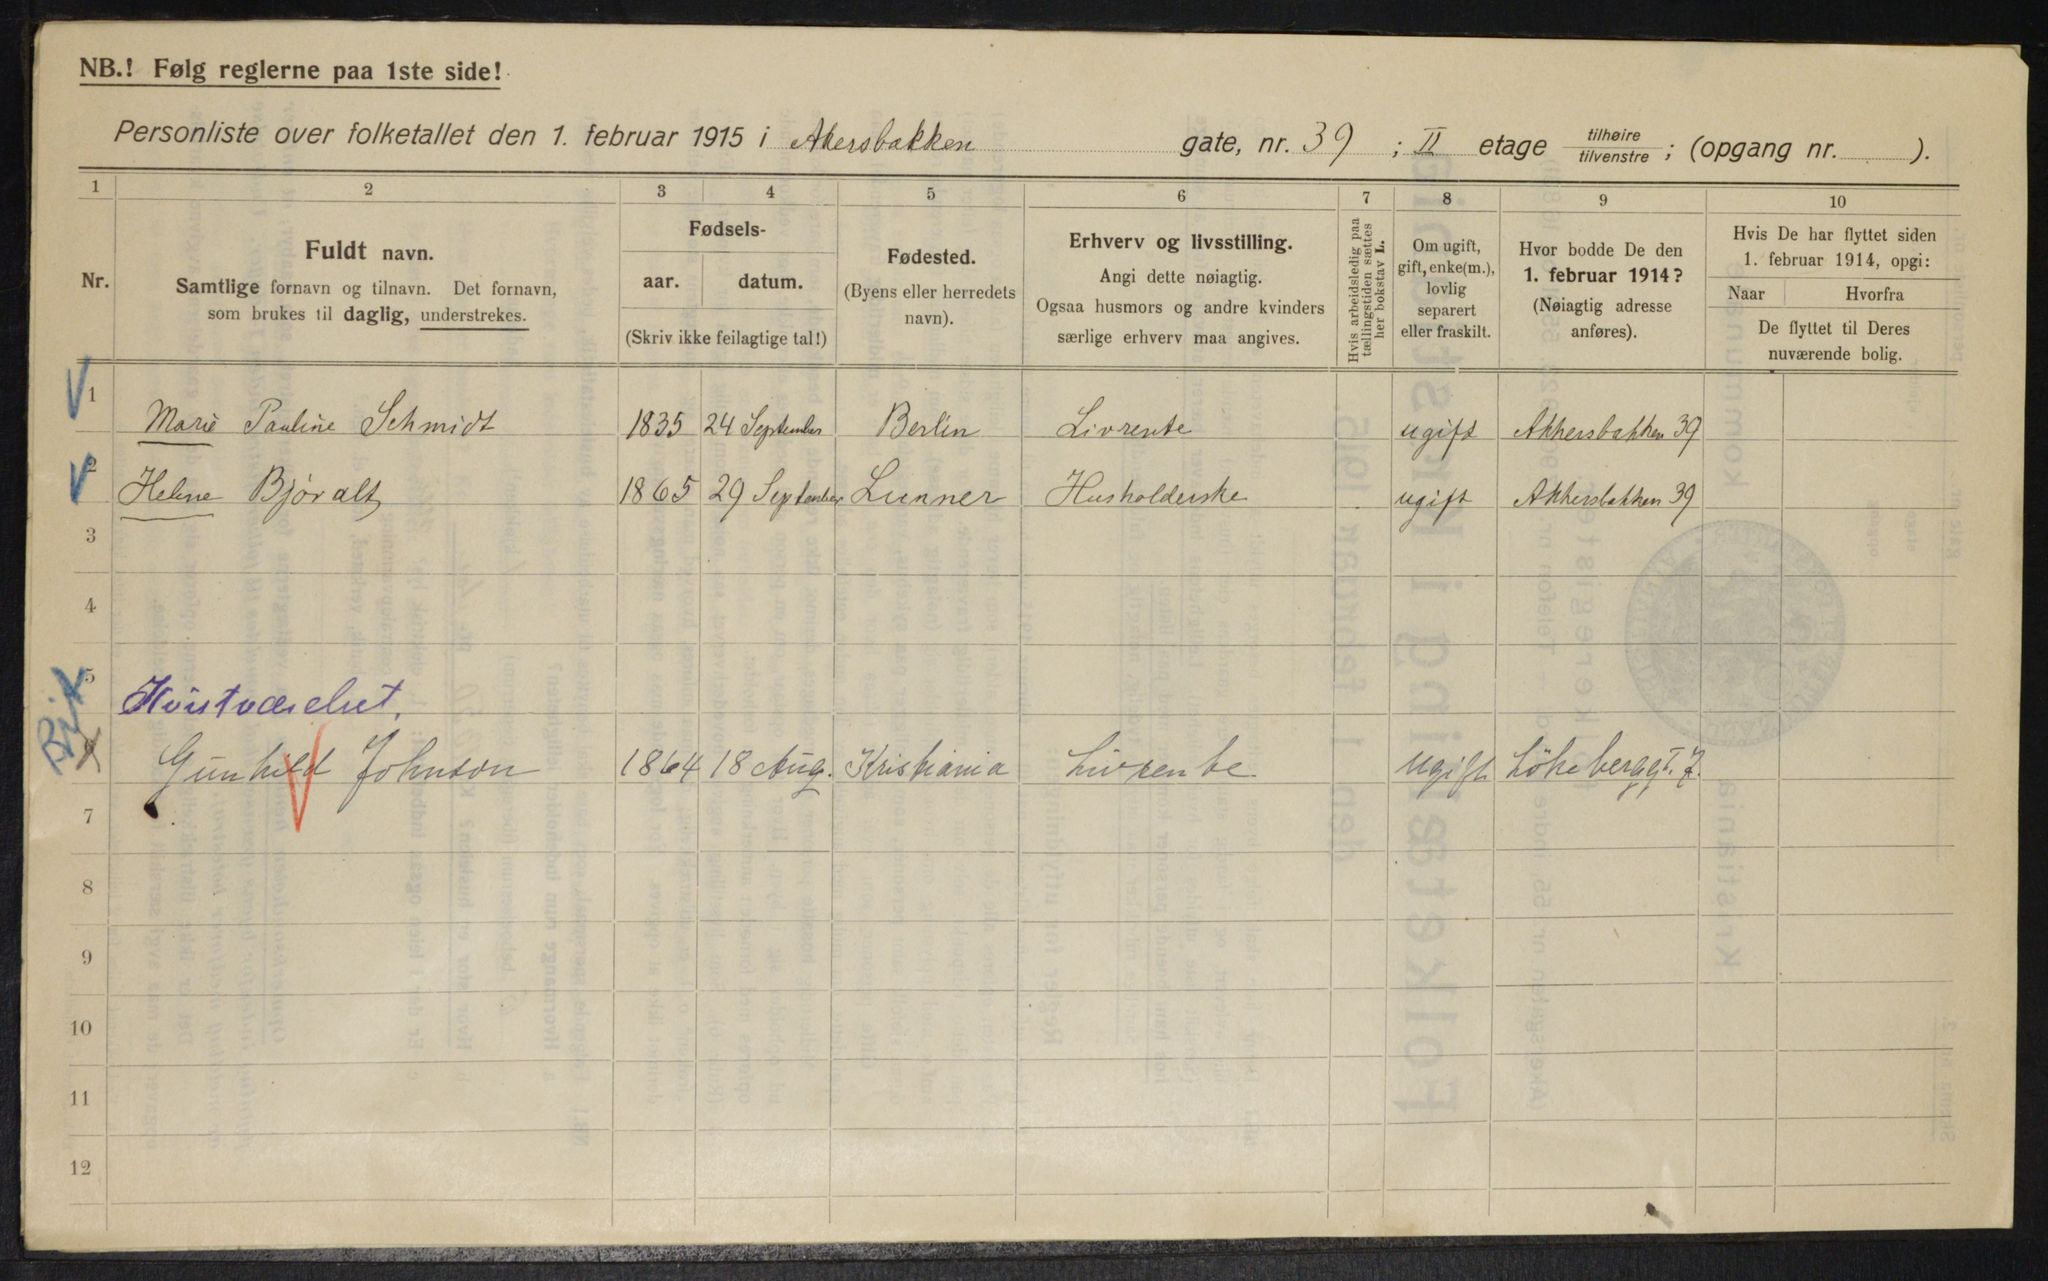 NB.! Følg reglerne paa 1ste side!
Personliste over folketallet den 1. februar 1915 i Akersbakken gate, nr. 39 ; II etage tilhøire/tilvenstre ; (opgang nr. ).
1 2 3 4 5 6 7 8 9 10
Nr.
Fuldt navn.
Samtlige fornavn og tilnavn. Det fornavn,
som brukes til daglig, understrekes.
Fødsels-
aar. datum.
(Skriv ikke feilagtige tal!)
Fødested.
(Byens eller herredets
navn).
Erhverv og livsstilling.
Angi dette nøiagtig.
Ogsaa husmors og andre kvinders
særlige erhverv maa angives.
Hvis arbeidsledig paa
tællingstiden sættes
her bokstav L.
Om ugift,
gift, enke(m.),
lovlig
separert
eller fraskilt.
Hvor bodde De den
1. februar 1914?
(Nøiagtig adresse
anføres).
Hvis De har flyttet siden
1. februar 1914, opgi:
Naar Hvorfra
De flyttet til Deres
nuværende bolig.
1 Marie Pauline Schmidt 1835 24 September Berlin Livrente ugift Akkersbakken 39
2 Helene Bjøralt 1865 29 September Lunner Husholderske ugift Akkersbakken 39
3
4
5 Kvistværelset.
6 Gunhild Johnson 1864 18 Aug. Kristiania Livrente ugift Lökkeberggt. 7.
7
8
9
10
11
12